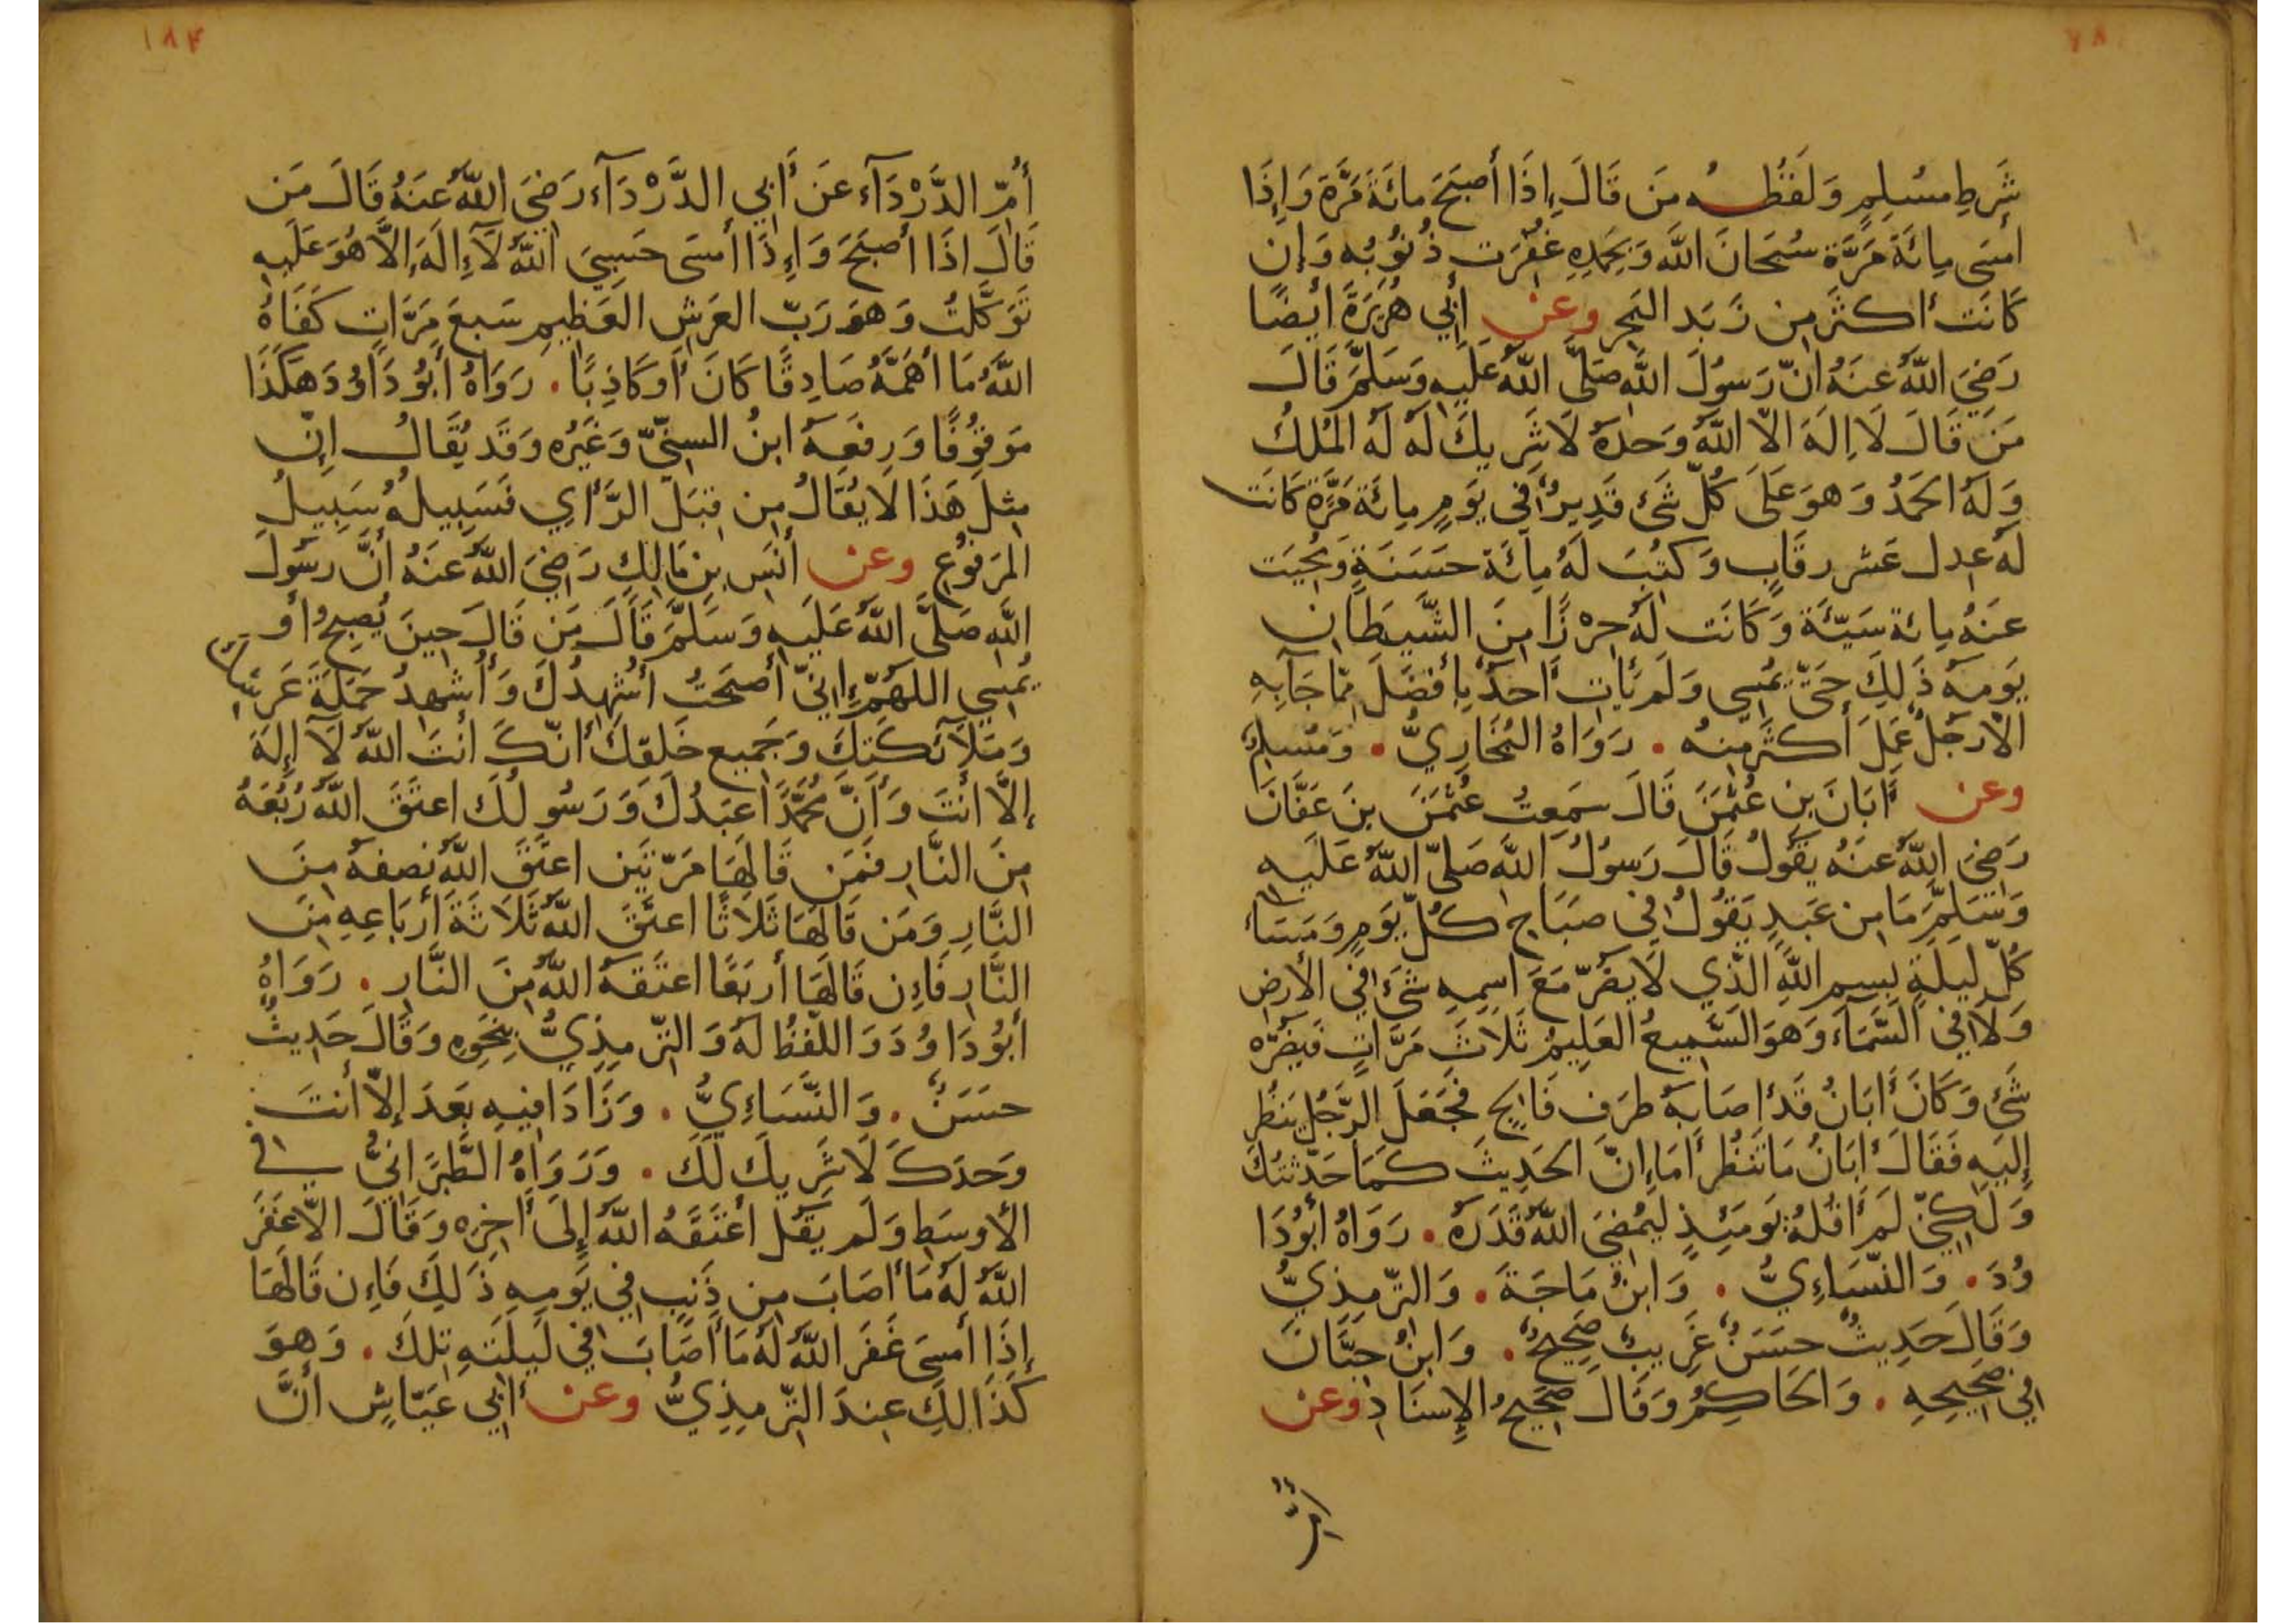 ٧٨
شَرطِ مسُلِمٍ وَلَفظُـه مَن قَالَ إِذَا أَصبَحَ مائَةَ مَرَّة وَإِذَا
امسَى مِائَةَ مَرَّة سُبحَانَ اللَّهَ وَبِحَمدِهِ غفُرَت ذُنوُبُه وَاِن
كَانَت أكثَرَ مِن زَبَد البَحرِ وعن أَبِي هُرَيرَةَ ايضًا
رَضِيَ اللَّهُ عَنهُ انّ رَسوُلَ اللَّهِ صَلَّى اللَّهُ عَلَيهِ وَسَلَّمَ قَالَ
مَن قَالَ لَا اِلَهَ الّا اللَّهُ وَحدَهُ لَا شَرِيكَ لَه لَه المُلكُ
وَلَهُ الحَمدُ وَهوَ عَلَى كُلّ شَئ قَدِيرٌ فِي يَومٍ مِائَة مَرَّة كَانَت
لَهُ عِدل عَشر رِقَابٍ وَكتُبَ لَهُ مِائَة حَسَنَةٍ وَمُحِيَت
عَنهُ مِائَة سَيّئَة وَكَانَت لَهُ حِرْزًا مِنَ الشَّيطَانِ
يَومِه ذَلِكَ حَتَّى يمُسِى وَلَم يَأتِ أَحدٌ بِأَفضَلَ مِمّا جَابِهِ
الاّ رَجُلٌ عَمَلَ أَكثَرَ مِنهُ . رَوَاهُ البُخَارِيُّ . وَمُسلِمٌ
وعن أَبَانَ بنِ عُثمَنَ قَالَ سَمِعتُ عُثمَنَ بنَ عَفَّانَ
رَضِيَ اللَّهُ عَنهُ يَقوُلُ قَالَ رَسوُلُ اللَّهِ صَلّى اللَّهُ عَلَيهِ
وَسَلَّمَ مَا مِن عَبدٍ يَقوُلُ فِي صَبَاحِ كُلّ يَومٍ وَمَسَاءِ
كُلّ لَيلَةٍ بِسمِ اللَّهِ الَّذِي لَا يَضُرّ مَعَ اسمِهِ شَئ فِي الأَرضِ
وَلَا فِي السَّمَاءَ وَهوَ السَّمِيعُ العَلِيمُ ثَلَاثَ مَرَّاتٍ فَيَضُرَّه
شَئ وَكَانَ أَبَانُ قَد أصَابَهُ طرَف فَالِجٍ فَجَعَلَ الرَّجُلُ يَنظُر
إِلَيهِ فَقَالَ أَبَانُ مَا تَنظُر أَمَا إِنَّ الحَدِيثَ كَمَا حَدَّثتُكَ
وَلَكِنّي لَم أَقُلهُ يَومَئِذٍ لِيمُضِيَ اللَّهُ قَدَرَه . رَوَاهُ أبُو دَا
وُدَ . وَالنّسَاءِيُّ . وَابنُ مَاجَةَ . وَالتّرمِذِيُّ
وَقَالَ حَدِيثٌ حسَنٌ غَرِيبٌ صَحِيحٌ . وَابنُ حِبَّانَ
فِي صَحِيحِهِ . وَالحَاكِمُ وَقَالَ صَحِيحُ الإِسنَادِ وعن
١٨٤
أُمّ الدَّرْدَآء عَن أَبِي الدَّرْدَآء رَضِيَ اللَّهُ عَنهُ قَالَ مَن
قَالَ اذَا أَصبَحَ وَإِذَا أمسَى حَسبِيَ اللَّهُ لَآ إِلَهَ إِلَّا هُوَ عَلَيهِ
تَوَكَّلتُ وَهوَ رَبّ العَرشِ العَظِيمِ سَبعَ مَرَّاتٍ كَفَاهُ
اللَّهُ مَا أَهَمَّهُ صَادِقًا كَانَ أَو كَاذِبًا . رَوَاهُ أَبُو دَاوُد هَكَذَا
مَوقوُفًا وَرِفعَهُ ابنُ السنِّيّ وَغَيُره وَقَد يُقَالُ اِنّ
مِثلَ هَذَا لَا يُقَالُ مِن قِبَلِ الرَّأيِ فَسَبِيلُهُ سَبِيلُ
المَرفوُعِ وعن أَنَس بنِ مَالِكٍ رَضِيَ اللَّهُ عَنهُ أَنَّ رسَوُلَ
اللَّهِ صَلَّى اللَّهُ عَلَيهِ وَسَلَّمَ قَالَ مَن قَالَ حِينَ يُصبِحُ أَو
يُمسِي اللَّهُمّ إِنيّ أَصبَحتُ أُشهِدُكَ وَأُشهِدُ حَمَلَةَ عَرشِكَ
وَمَلَآئِكَتِكَ وَجَمِيع خَلقِكَ أَنّكَ أنتَ اللَّهُ لَآ إِلهَ
إِلَّا أَنتَ وَأَنَّ مُحَمَّدًا عَبدُكَ وَرَسُولُكَ اعتَقَ اللَّهُ رُبُعَهُ
مِنَ النَّارِ فَمَن قَالَهَا مَرّتَين اعتَقَ اللَّهُ نصِفهُ مِنَ
النَّارِ وَمَن قَالَهَا ثَلَاثًا اعتَقَ اللَّهُ ثَلَاثَةَ أَربَاعِهِ مِنَ
النَّارِ فَاِن قَالَهَا أربَعًا اعتَقَهُ اللَّهُ مِنَ النَّارِ . رَوَاهُ
أبُو دَاوُدَ وَاللّفظُ لَهُ وَالتّرمِذِيُّ بِنَحوِهِ وَقَالَ حَدِيثٌ
حسَنٌ . وَالنَّسَاءِيُّ . وَزَادَا فِيهِ بَعَدَ إِلاّ أَنتَ
وَحدَكَ لَا شَرِيكَ لَكَ . وَرَوَاهُ الطَّبرَانِيُّ فِي
الأوسَطِ وَلَم يَقُل أَعتَقَهُ اللَّهُ إِلَى أَخِرِه وَقَالَ الاّ غَفَرَ
اللَّهُ لَهُ مَا أَصَابَ مِن ذَنبٍ فِي يَومِهِ ذَلِكَ فَاِن قَالَهَا
إِذَا أمسَى غَفَر اللَّهُ لَهُ مَا أَصَابَ فِي لَيلَتِهِ تِلكَ . وَهوَ
كَذَالِكَ عِندَ التّرمِذِيُّ وعن أَبِي عَيَّاشٍ أَنَّ